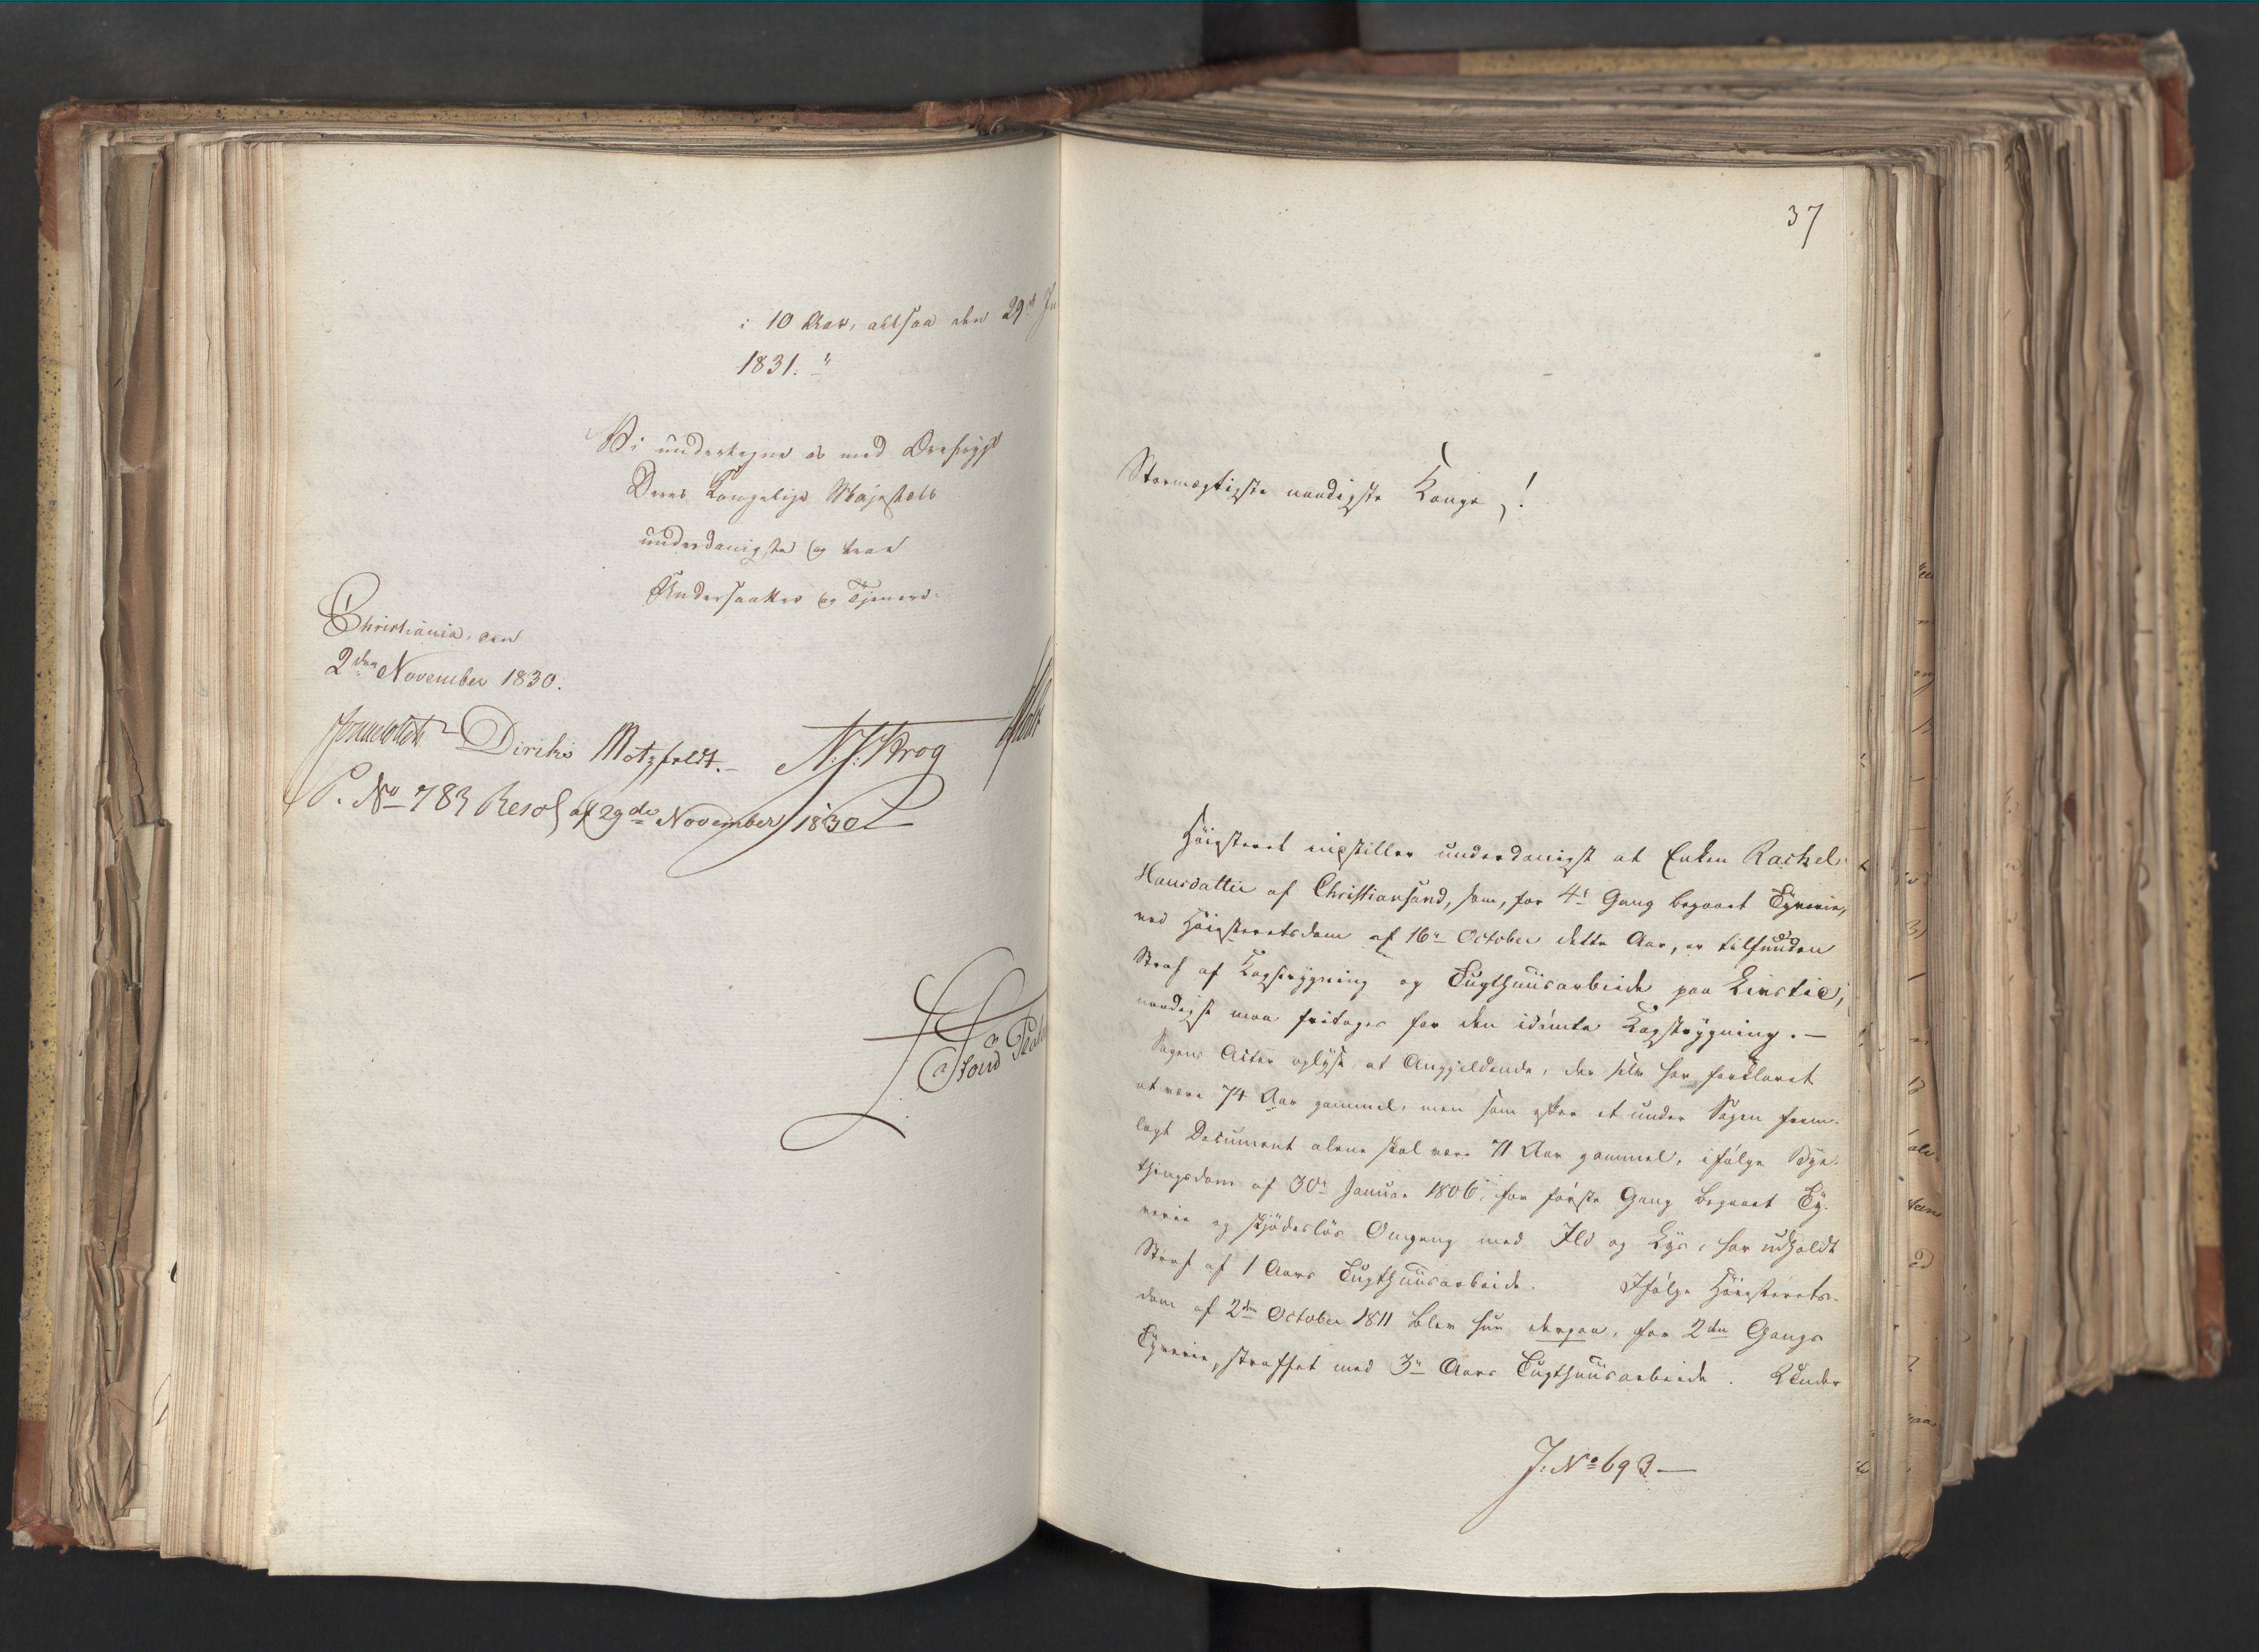 i 10 Aar, altsaa den 29de
1831."
Vi undertegne os med Ærefrygt
Deres Kongelige Majestæts
underdanigste og troe
Undersaatter og Tjenere.
Christiania, den
2den November 1830.
Diriks Motzfeldt.- N.J. Krog
P. No 783 Resol af 29de November 1830
37
Stormægtigste naadigste Konge,!
Höiesteret inpstiller underdanigst at Enken Rachel
Hansdatter af Christiansand, som, for 4de Gang begaaet Tyverie,
ved Höiesteretsdom af 16de October dette Aar, er tilfunden
Straf af Kagstrygning og Tugthuusarbeide paa Livstid,
naadigst maa fritages for den idömte Kagstrygning. -
Sagens Acter oplyse, at Angjeldende, der selv har forklaret
at være 74 Aar gammel, men som efter et under Sagen frem-
lagt Document alene skal være 71 Aar gammel, ifölge Bye-
thingsdom af 30te Januar 1806, for förste Gang begaaet Ty-
verie og skjödeslös Omgang med Ild og Lys, har udholdt
Straf af 1 Aars Tugthuusarbeide. Ifölge Höiesterets-
dom af 2den October 1811 blev hun derpaa, for 2den Gangs
Tyverie, straffet med 3de Aars Tugthuusarbeide. Under
J: No 693 -